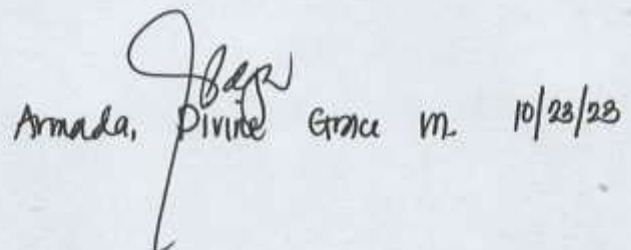 Armada, Divine Grace M. 10/23/23